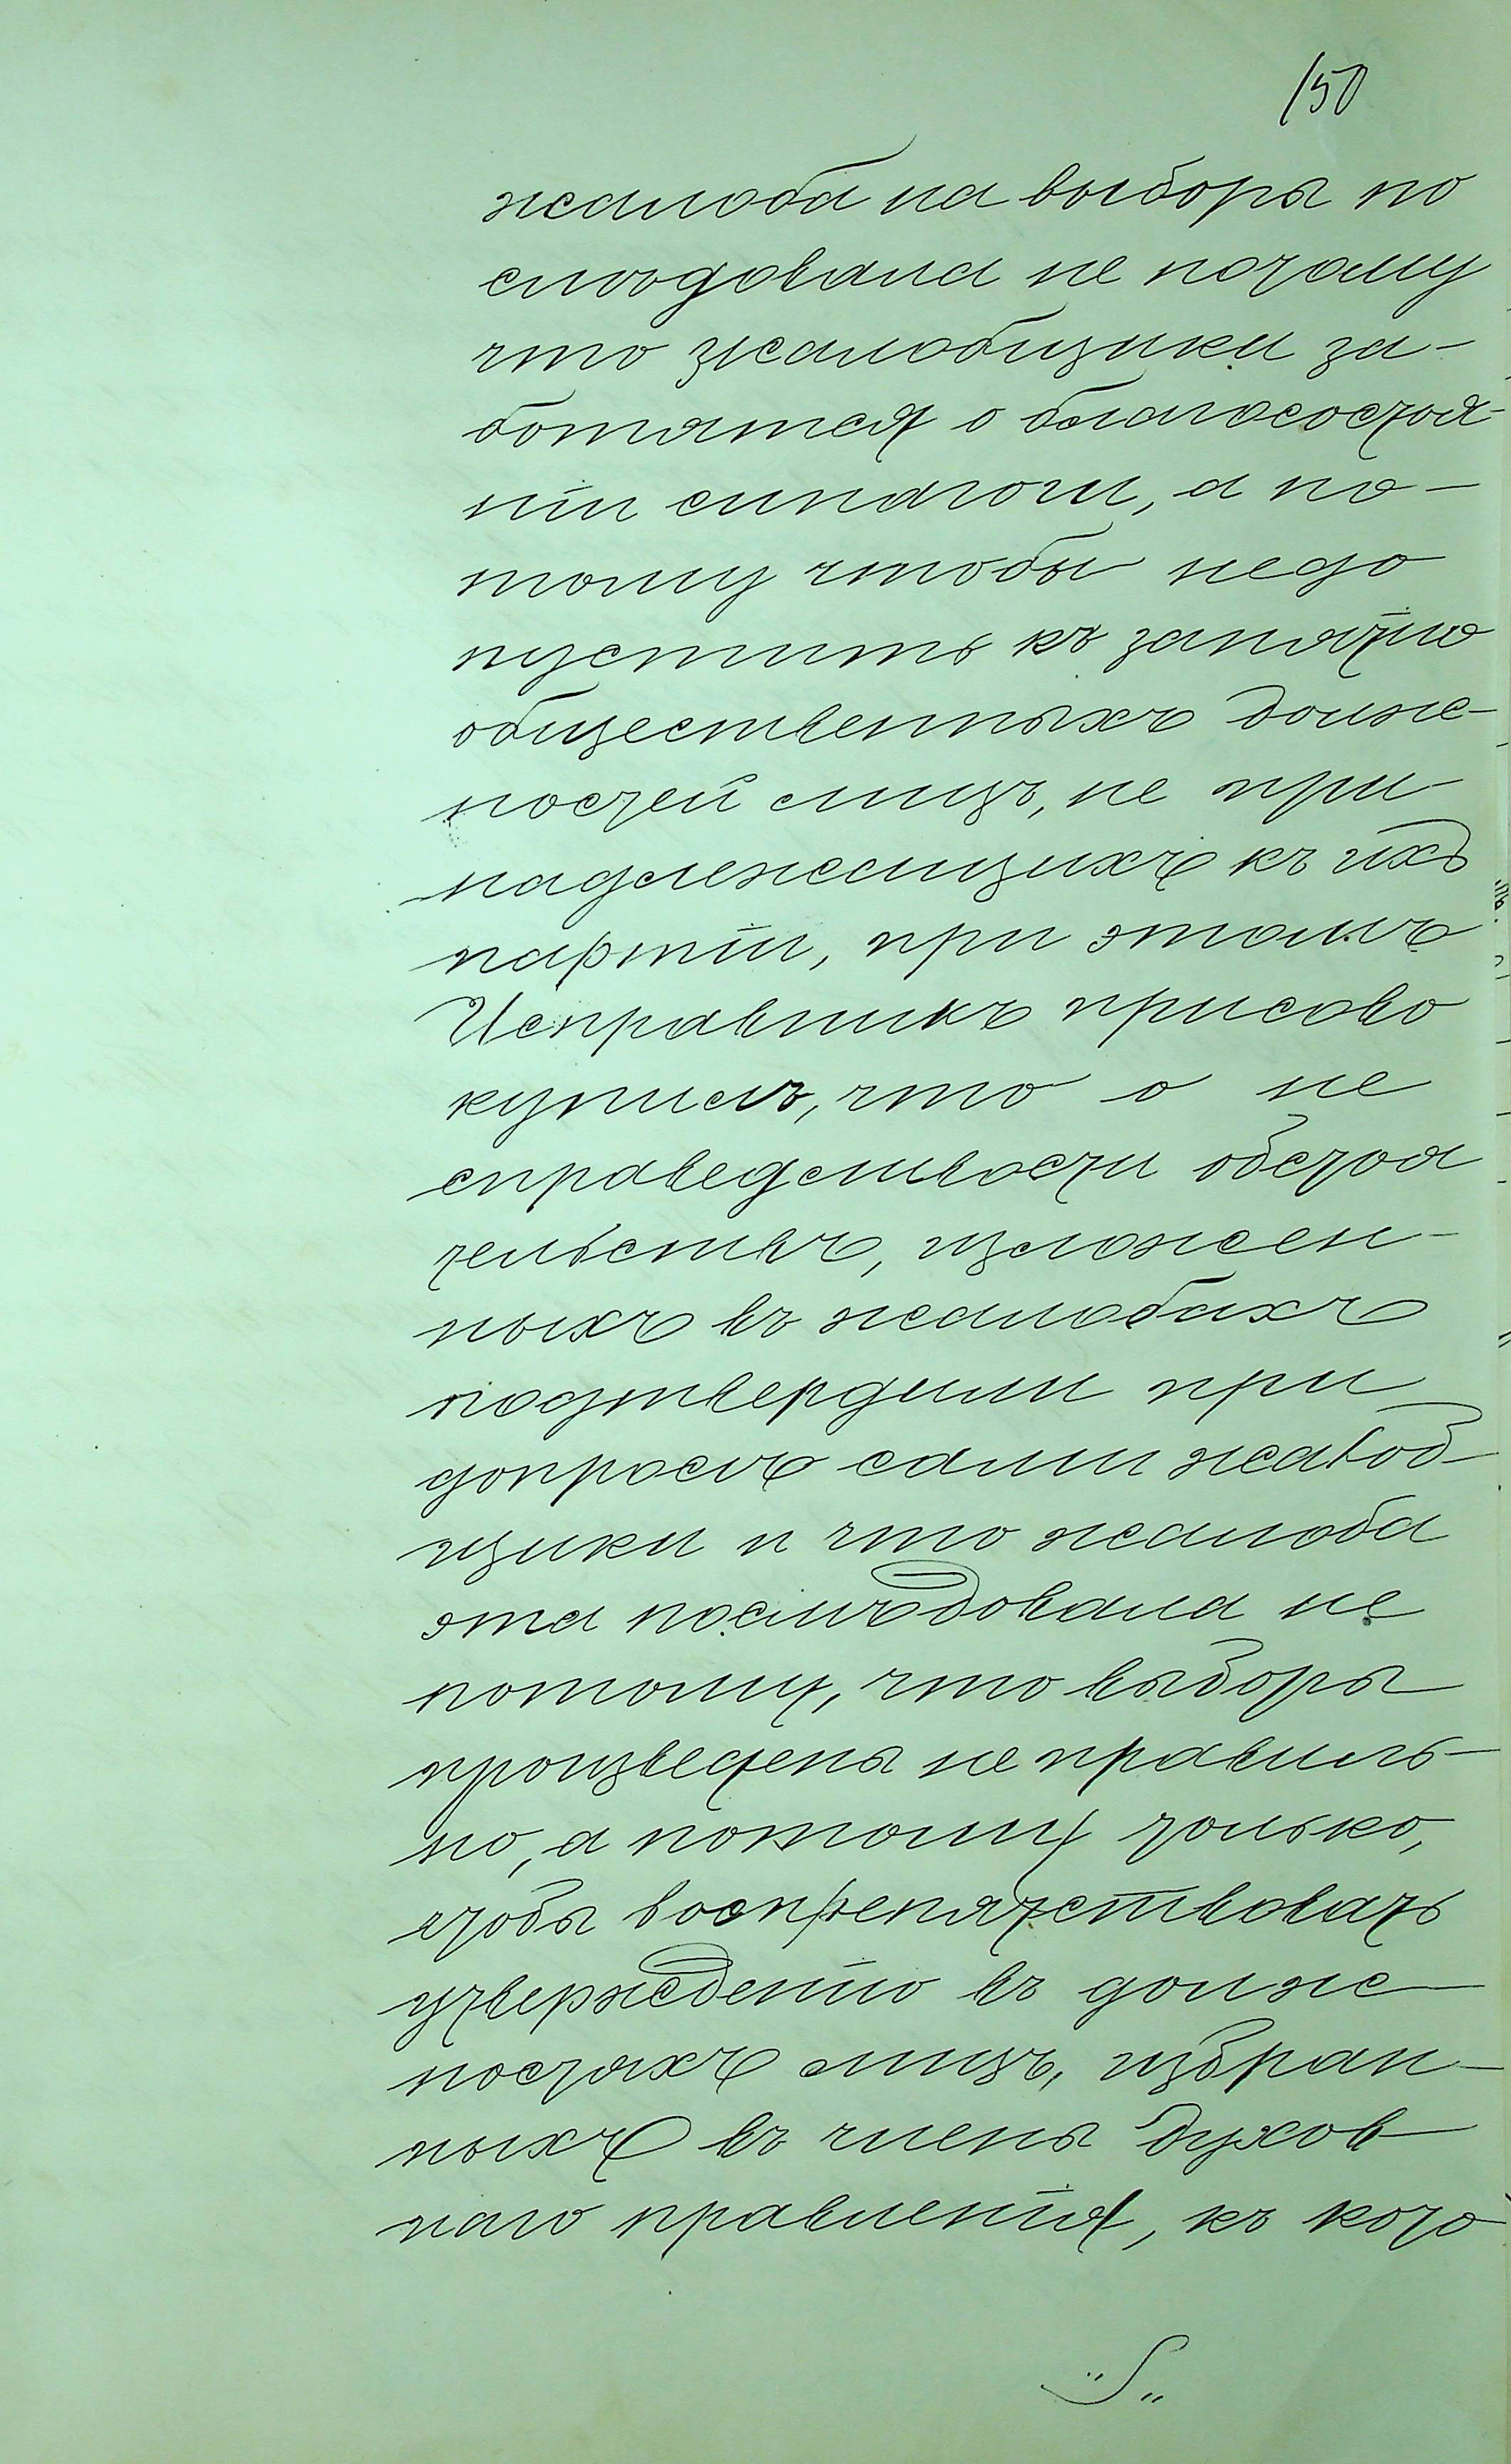 150
жалоба на выборы по
слѣдовала не потому
что жалобщики за-
ботятся о благосостоя-
ніи синагоги, а по-
тому чтобы недо
пустить къ занятію
общественныхъ долж-
ностей лицъ, не при
надлежащихъ къ ихъ
партіи, при этомъ
Исправникъ присово
купилъ, что о не
справедливости обстоя
тельствъ, изложен-
ныхъ въ жалобахъ
подтвердили при
допросѣ сами жалоб-
щики и что жалоба
эта послѣдовала не
потому, что выборы
произведены неправиль-
но, а потому только,
чтобы воспрепятствовать
утвержденію въ долж-
ностяхъ лицъ, избран-
ныхъ въ члены духов
наго правленія, къ кото